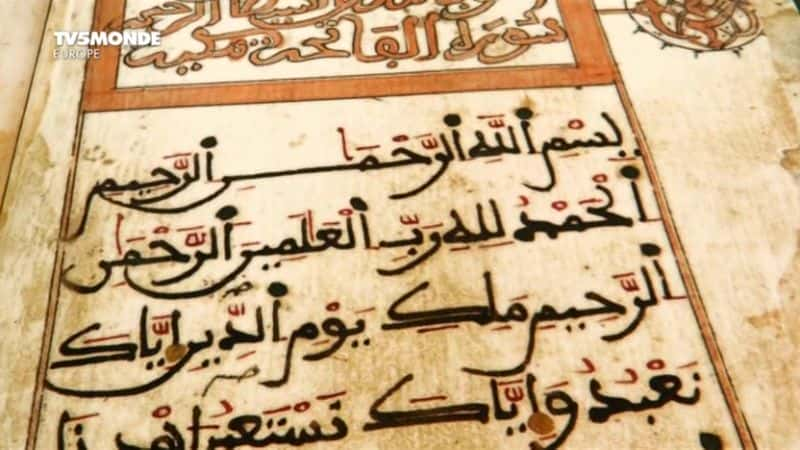 TV5MONDE
EUROPE
سورة الفاتحة مكية
بسم الله الرحمن الرحيم
الْحَمْدُ لِلهِ رَبِّ الْعَلَمِينَ الرَّحْمَنِ
الرَّحِيمِ مَلِكِ يَوْمِ الدِّينِ إِيَّاكَ
نَعْبُدُ وَإِيَّاكَ نَسْتَعِينُ اهْدِنَا